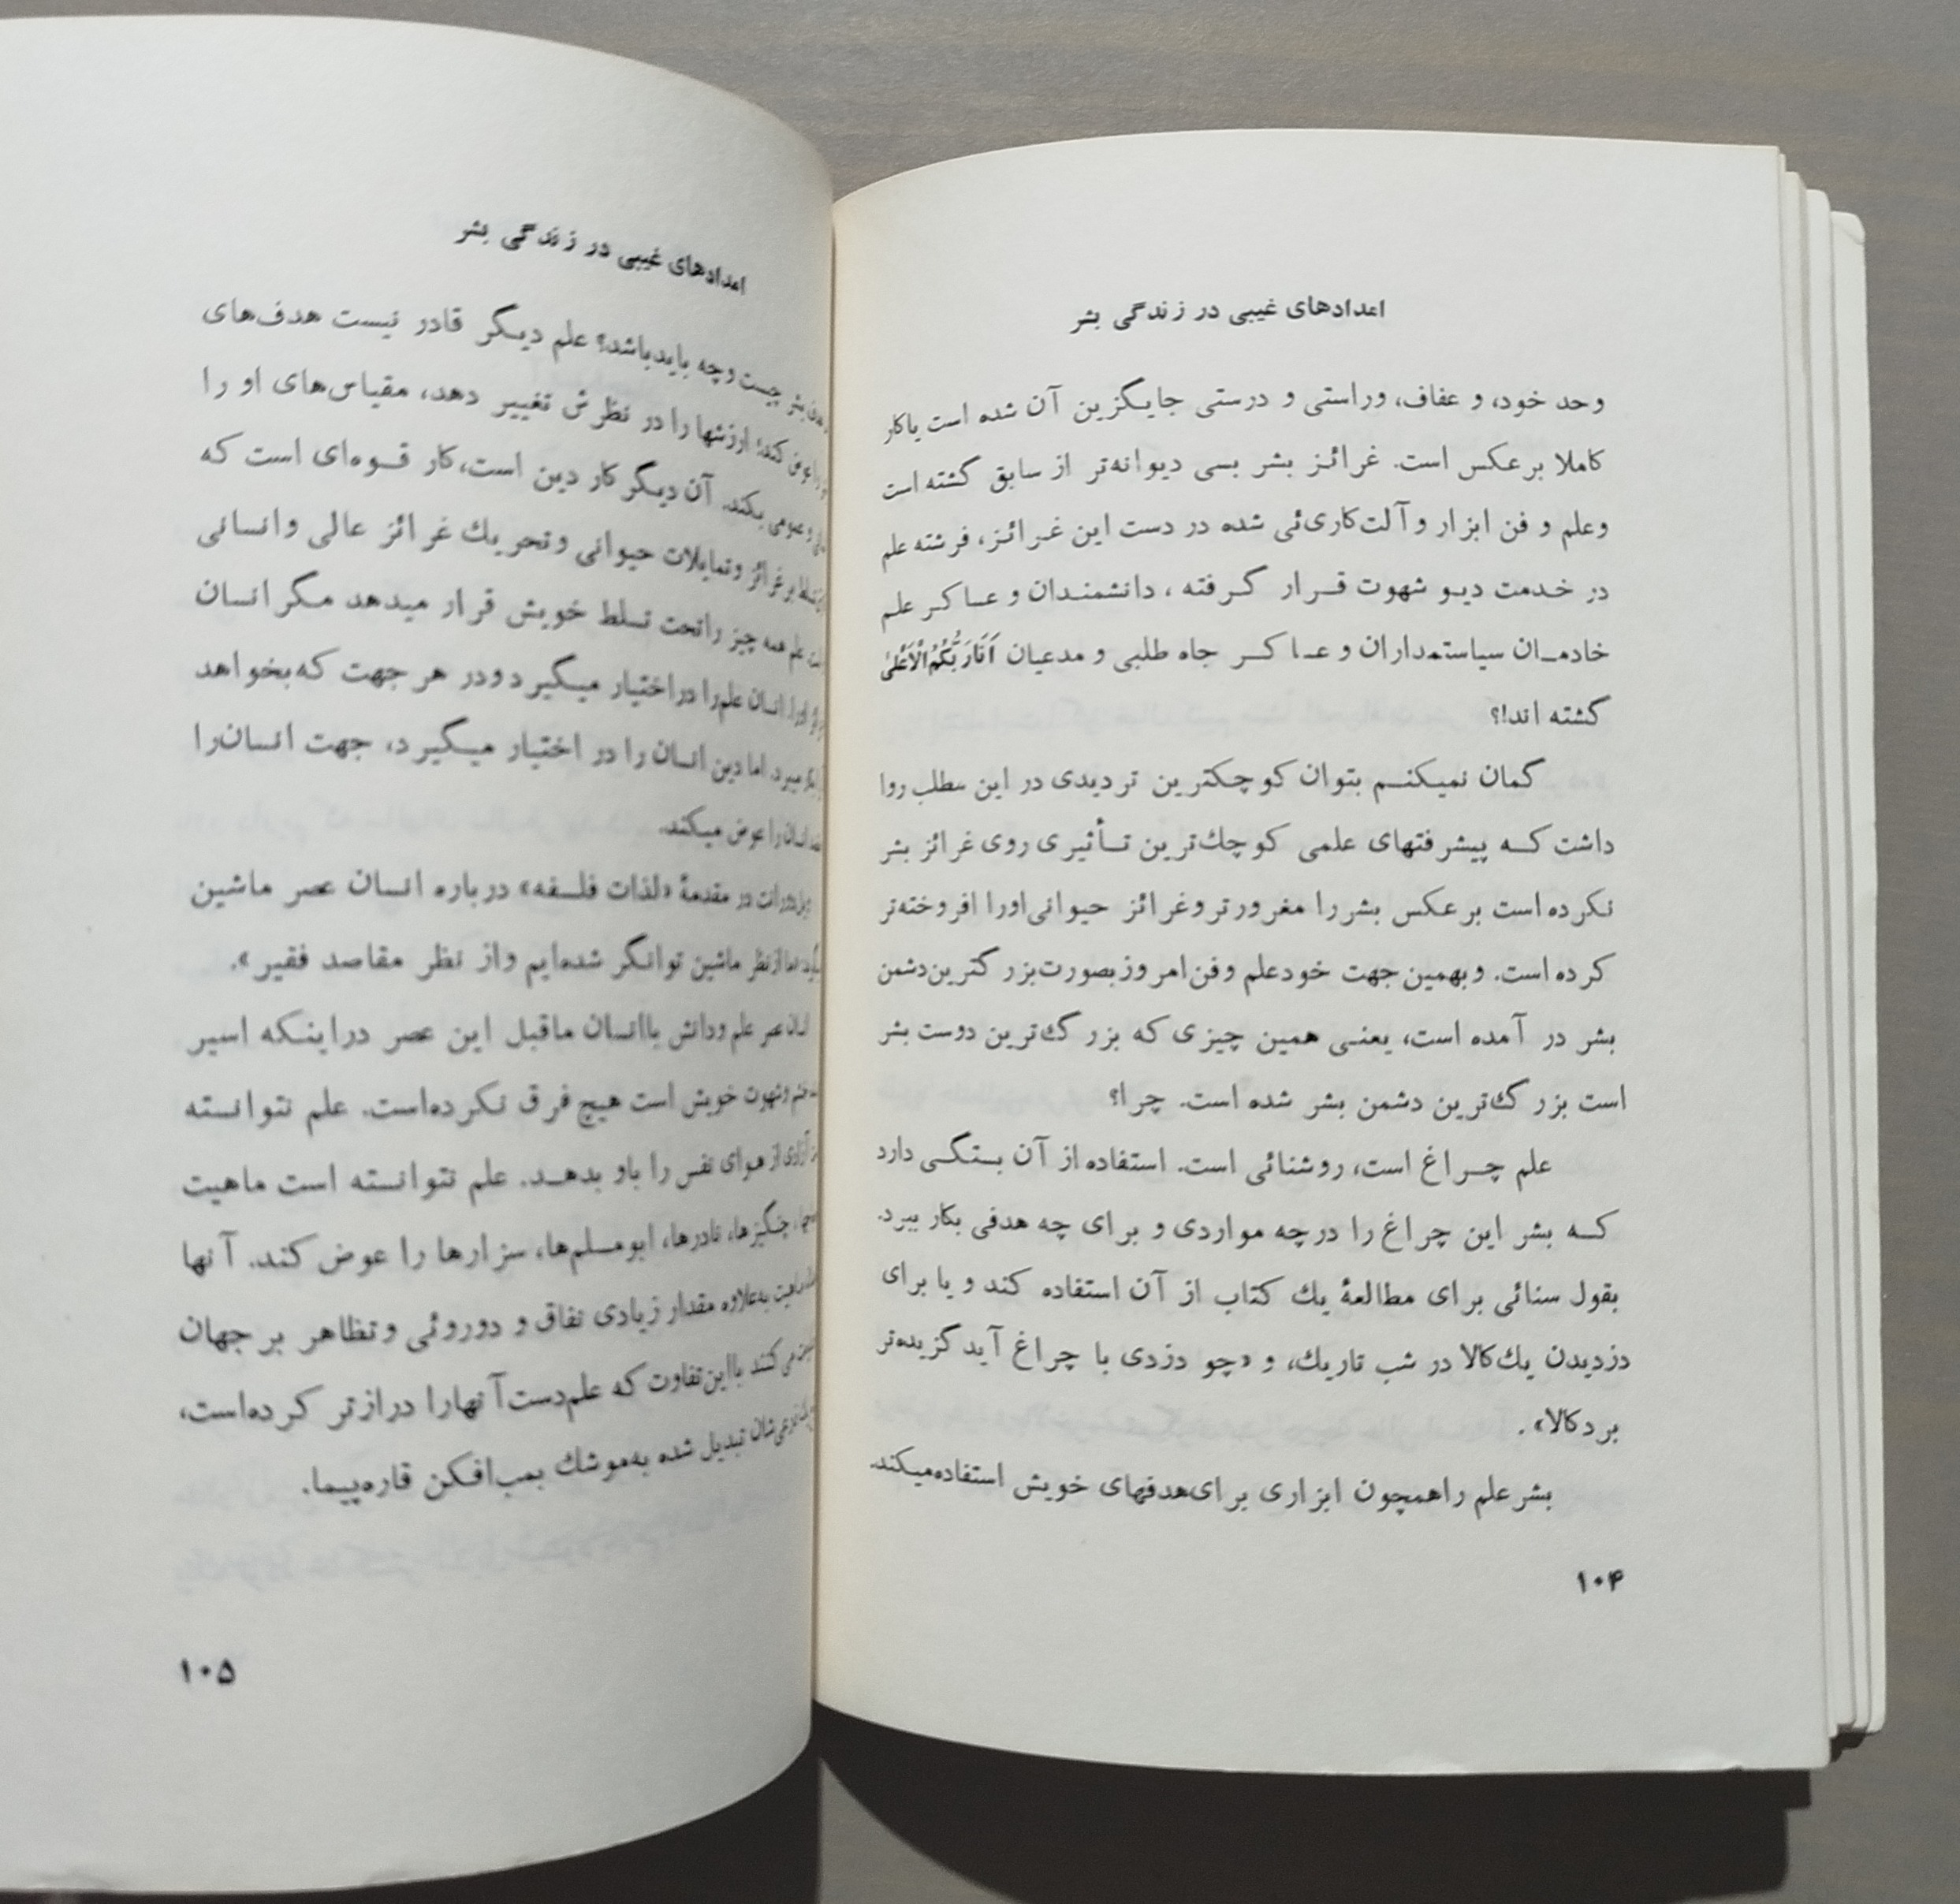 امدادهای غیبی در زندگی بشر
وحد خود، و عفاف، وراستی و درستی جایگزین آن شده است یاکار
کاملا برعکس است. غرائز بشر بسی دیوانه‌تر از سابق گشته است
وعلم و فن ابزار و آلت‌کاری‌ئی شده در دست این غرائز، فرشته علم
در خدمت دیو شهوت قرار گرفته ، دانشمندان و عساکر علم
خادمان سیاستمداران و عساکر جاه طلبی و مدعیان اَنَا رَبُّکُمُ الْاَعْلیٰ
گشته اند!؟
گمان نمیکنم بتوان کوچکترین تردیدی در این مطلب روا
داشت که پیشرفتهای علمی کوچك‌ترین تأثیری روی غرائز بشر
نکرده است برعکس بشر را مغرورتر و غرائز حیوانی‌اورا افروخته‌تر
کرده است. و بهمین جهت خود علم و فن امروز بصورت بزرگترین دشمن
بشر در آمده است، یعنی همین چیزی که بزرگ‌ترین دوست بشر
است بزرگ‌ترین دشمن بشر شده است. چرا؟
علم چراغ است، روشنائی است. استفاده از آن بستگی دارد
که بشر این چراغ را درچه مواردی و برای چه هدفی بکار ببرد.
بقول سنائی برای مطالعهٔ یك کتاب از آن استفاده کند و یا برای
دزدیدن یك‌کالا در شب تاریك، و «چو دزدی با چراغ آید گزیده‌تر
برد کالا» .
بشر علم را همچون ابزاری برای‌هدفهای خویش استفاده‌میکند.
۱۰۴
امدادهای غیبی در زندگی بشر
بشر چیست وچه بایدباشد؟ علم دیگر قادر نیست هدف‌های
عوض کند؛ ارزشها را در نظرش تغییر دهد، مقیاس‌های او را
و عمومی بکند. آن دیگر کار دین است،کار قوه‌ای است که
تسلط بر غرائز و تمایلات حیوانی و تحریك غرائز عالی و انسانی
علم همه چیز را تحت تسلط خویش قرار میدهد مگر انسان
انسان علم‌را دراختیار میگیرد ودر هر جهت که بخواهد
میبرد اما دین انسان را در اختیار میگیرد، جهت انسان‌را
انسان را عوض میکند.
ویل دورانت در مقدمهٔ «لذات فلسفه» درباره انسان عصر ماشین
«ما از نظر ماشین توانگر شده‌ایم و از نظر مقاصد فقیر».
انسان عصر علم ودانش باانسان ماقبل این عصر دراینکه اسیر
خشم وشهوت خویش است هیچ فرق نکرده‌است. علم نتوانسته
آزادی از هوای نفس را باو بدهد. علم نتوانسته است ماهیت
چنگیزها، نادرها، ابومسلم‌ها، سزارها را عوض کند. آنها
ماهیت به‌علاوه مقدار زیادی نفاق و دوروئی و تظاهر بر جهان
می‌کنند بااین‌تفاوت که علم‌دست‌آنهارا درازتر کرده‌است،
تبدیل شده به‌موشك بمب‌افکن قاره‌پیما.
۱۰۵